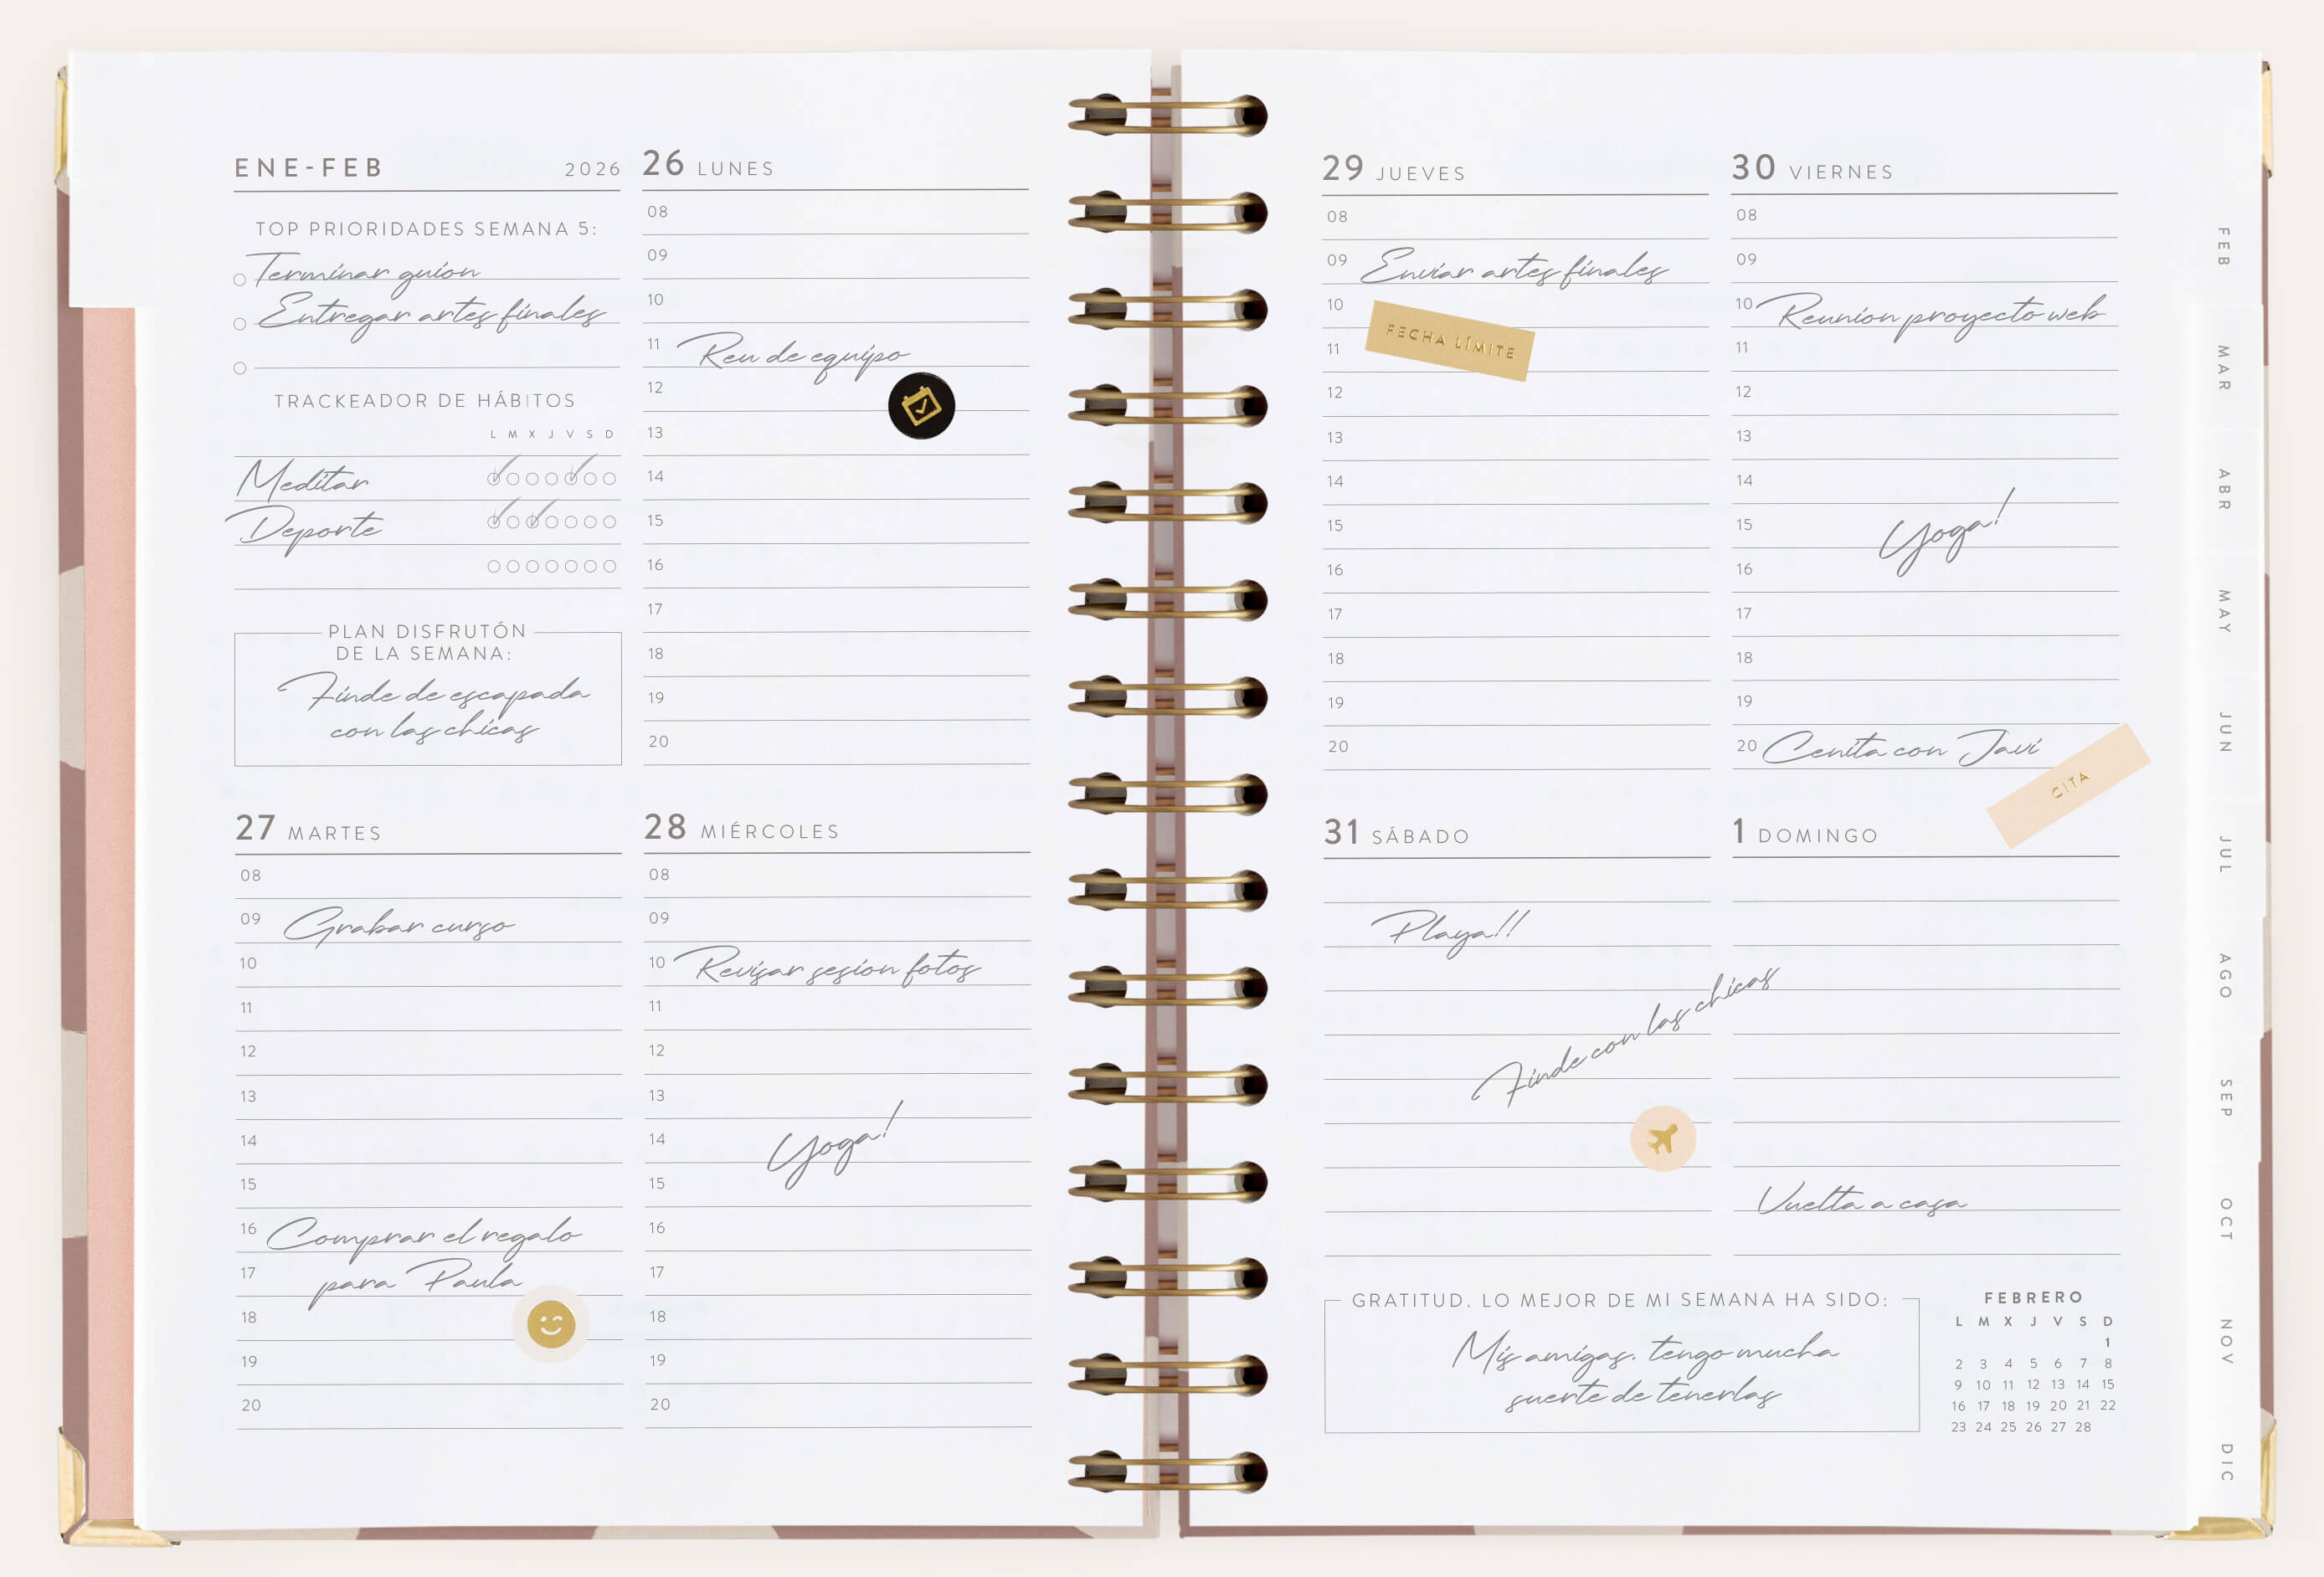 ENE-FEB 2026
TOP PRIORIDADES SEMANA 5:
Terminar guion
Entregar artes finales
TRACKEADOR DE HÁBITOS
L M X J V S D
Meditar
Deporte
PLAN DISFRUTÓN
DE LA SEMANA:
Finde de escapada
con las chicas
26 LUNES
08
09
10
11 Reu de equipo
12
13
14
15
16
17
18
19
20
27 MARTES
08
09 Grabar curso
10
11
12
13
14
15
16 Comprar el regalo
17 para Paula
18
19
20
28 MIÉRCOLES
08
09
10 Revisar sesion fotos
11
12
13
14 Yoga!
15
16
17
18
19
20
29 JUEVES
08
09 Enviar artes finales
10
FECHA LÍMITE
11
12
13
14
15
16
17
18
19
20
30 VIERNES
08
09
10 Reunion proyecto web
11
12
13
14
15 Yoga!
16
17
18
19
20 Cenita con Javi
CITA
31 SÁBADO
Playa!!
Finde con las chicas
1 DOMINGO
Vuelta a casa
GRATITUD. LO MEJOR DE MI SEMANA HA SIDO:
Mis amigas. tengo mucha
suerte de tenerlas
FEBRERO
L M X J V S D
1
2 3 4 5 6 7 8
9 10 11 12 13 14 15
16 17 18 19 20 21 22
23 24 25 26 27 28
FEB
MAR
ABR
MAY
JUN
JUL
AGO
SEP
OCT
NOV
DIC